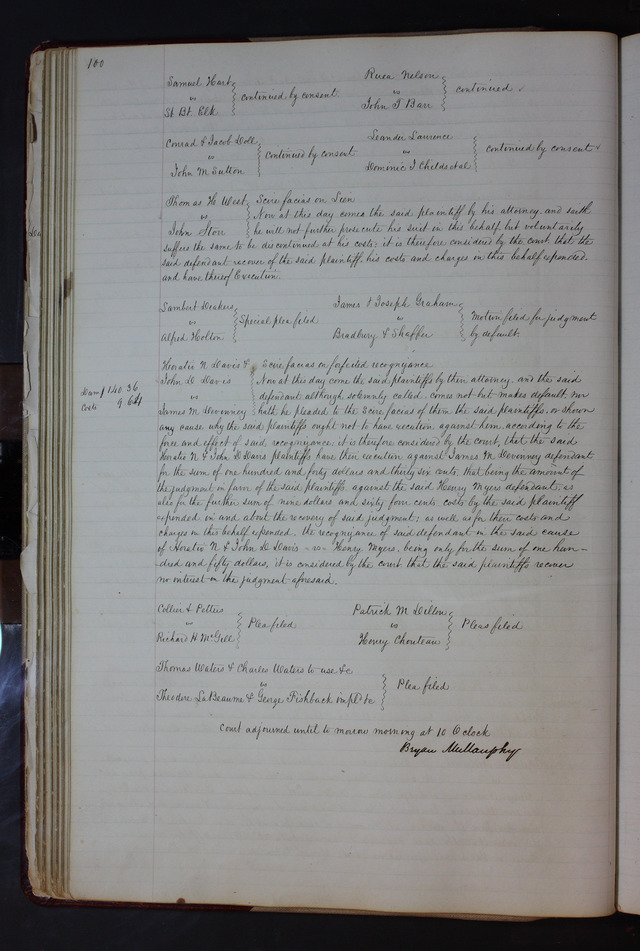 100
Samuel Hart
vs
St Bt Elk
continued by consent
Ruen Nelson
vs
John T Barr
continued
Conrad & Jacob Doll
vs
John M Sutton
continued by consent
Leander Lawrence
vs
Dominic J Childs et al
continued by consent
Thomas H. West Scire facias on Lien
vs Now at this day comes the said plaintiff by his attorney, and saith
John Storr he will not further prosecute his suit in this behalf, but voluntarily
suffers the same to be discontinued at his costs; it is therefore considered by the court that the
said defendant recover of the said plaintiff, his costs and charges in this behalf expended,
and have thereof Execution.
Lambert Deakers
vs
Alfred Holton
Special plea filed
James & Joseph Graham
vs
Bradbury & Shaffer
Motion filed for judgment
by default.
Horatio N Davis & Scire facias on forfeited recognizance
Dam$ 140.36
Costs 9.64
John D Davis Now at this day come the said plaintiffs by their attorney, and the said
vs defendant although solemnly called, comes not but makes default, nor
James M Devenney hath he pleaded to the Scire facias of them the said plaintiffs, or shown
any cause why the said plaintiffs ought not to have execution against him, according to the
force and effect of said recognizance; it is therefore considered by the court, that the said
Horatio N & John D Davis plaintiffs have their execution against James M. Devenney defendant
for the sum of one hundred and forty dollars and thirty six cents, that being the amount of
the judgment in favor of the said plaintiffs, against the said Henry Myers defendant, as
also for the further sum of nine dollars and sixty four cents costs by the said plaintiff
expended in and about the recovery of said judgment; as well as for their costs and
charges in this behalf expended. the recognizance of said defendant in the said cause
of Horatio N & John D Davis - vs - Henry Myers, being only for the sum of one hun-
dred and fifty dollars, it is considered by the court that the said plaintiffs recover
no interest on the judgment aforesaid.
Collier & Pettus
vs
Richard H McGill
Plea filed
Patrick M Dillon
vs
Henry Chouteau
Pleas filed
Thomas Waters & Charles Waters to use &c
vs
Theodore LaBeaume & George Fishback impl'd &c
Plea filed
Court adjourned until to morrow morning at 10 O'clock
Bryan Mullanphy